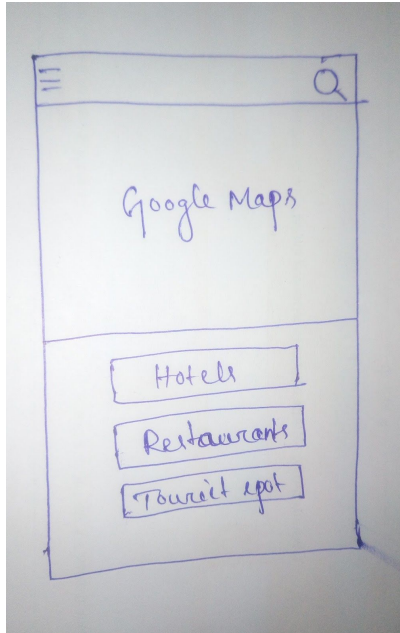 Google Maps
Hotels
Restaurants
Tourist spot